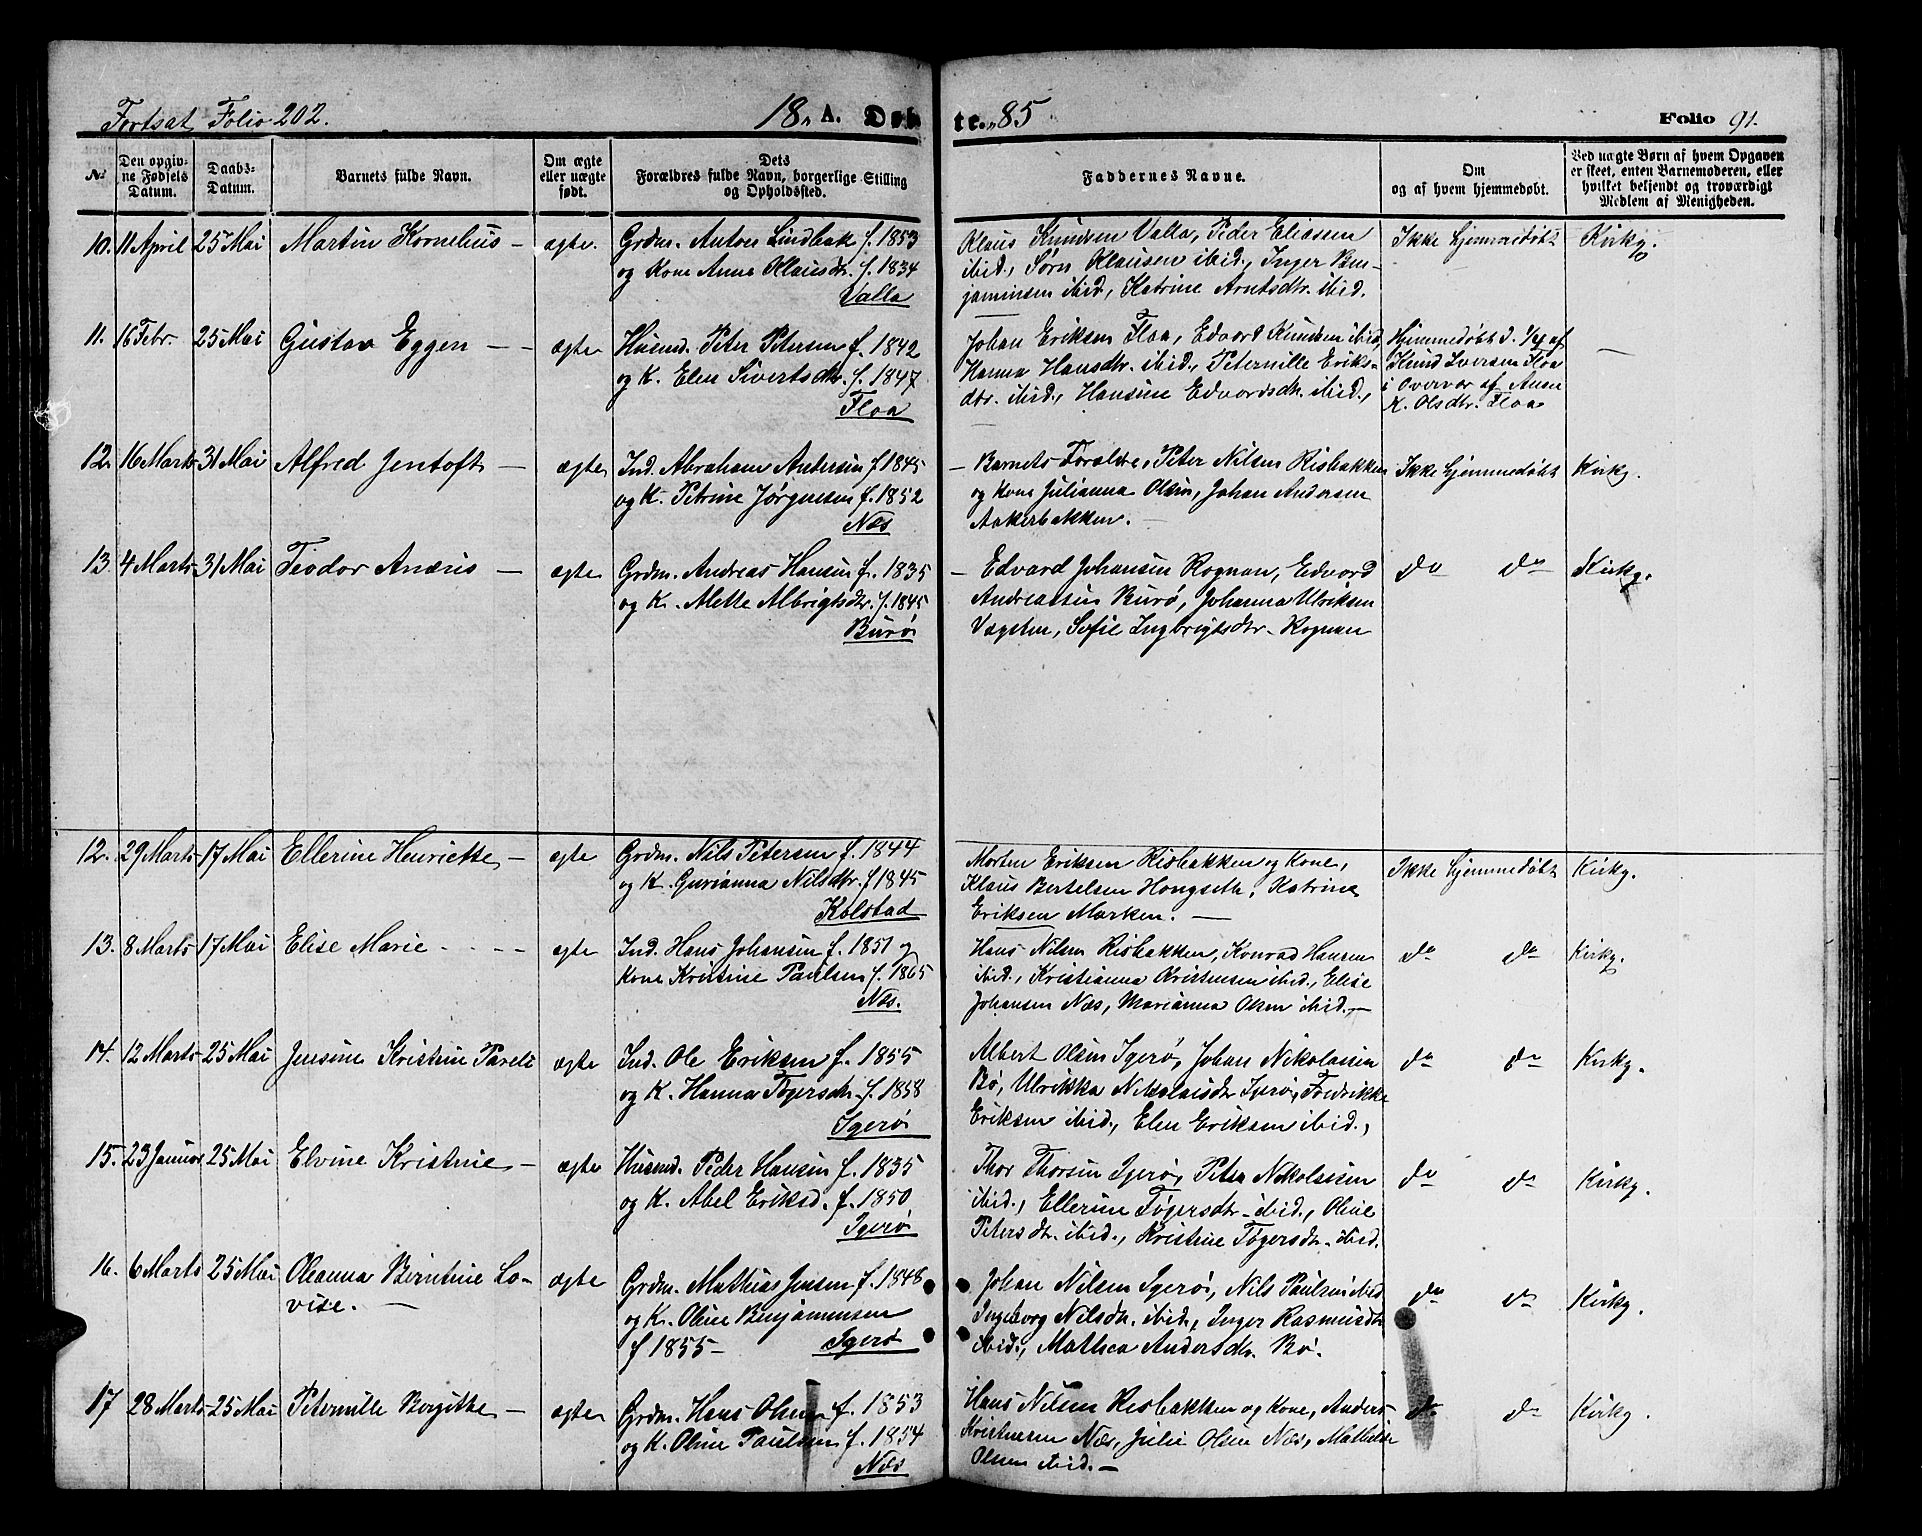 Fortsat Folio 202.
18 A. Døbte. 85
Folio 91.
№
Den opgivne Fødsels Datum.
Daabs-Datum.
Barnets fulde Navn.
Om ægte eller uægte født.
Dets Forældres fulde Navn, borgerlige Stilling og Opholdssted.
Faddernes Navne.
Om og af hvem hjemmedøbt.
Ved uægte Børn af hvem Opgaven er skeet, enten Barnemoderen, eller hvilket bekjendt og troværdigt Medlem af Menigheden.
10. 11 April 25 Mai Martin Kornelius – ægte. Grdm. Antoni Lindbak f. 1853
og Kone Anna Klausdtr. f. 1834
Valla
Klaus Knudsen Valla, Peder Eliassen
ibid., Sørn Klausen ibid., Inger Ben-
jaminsen ibid, Katrine Arntsdtr. ibid.
Ikke hjemmedøbt
Kirkg.
11. 16 Febr. 25 Mai Gustav Eggen – – ægte Husmd. Peter Petersen f. 1842
og K. Elen Sivertsdtr. f. 1847
Floa
Johan Eriksen Floa, Edvart Knudsen ibid,
Hanna Hansdtr. ibid., Peternille Eriks-
dtr. ibid., Hansine Edvardsdtr. ibid.,
Hjemmedøbt d. 1/4 af
Knud Iversen Floa
i Overvær af Anne
K. Olsdtr. Floa
–
12. 16 Marts 31 Mai Alfred Jentoft – ægte Ind. Abraham Andersen f. 1845
og K. Petrine Jørgensen f. 1852
Næs
– Barnets Forældre, Peter Nilsen Risbakken
og Kone Julianna Olsen, Johan Andersen
Aakerbakken. –
Ikke hjemmedøbt
Kirkg.
13. 4 Marts 31 Mai Tiodor Anæris – ægte Grdm. Andreas Hansen f. 1835
og K. Alette Albrigtsdtr. f. 1845
Burø
– Edvard Johansen Rognan, Edvard
Andreassen Burø, Johanna Ulriksen
Vægsten, Sofie Ingbrigtsdtr. Rognan
do do
Kirkg.
12. 29 Marts 17 Mai Ellerine Henriette – ægte Grdm. Nils Petersen f. 1844
og K. Gurianna Nilsdtr. f 1845
Kolstad
Morten Eriksen Risbakken og Kone,
Klaus Bertelsen Hongseth, Katrine
Eriksen Marken. –
Ikke hjemmedøbt
Kirkg.
13. 8 Marts 17 Mai Elise Marie – – ægte Ind. Hans Johansen f. 1851 og
Kone Kristine Paulsen f. 1865
Næs.
Hans Nilsen Risbakken, Konrad Hansen
ibid., Kristianna Kristensen ibid., Elise
Johansen Næs, Marianna Olsen ibid. –
do do
Kirkg.
14. 12 Marts 25 Mai Jensine Kristine Pareli ægte Ind. Ole Eriksen f. 1855
og K. Hanna Tøgersdtr. f. 1858
Igerø
Albert Olsen Igerø, Johan Nikolaisen
Bø, Ulrikka Nikolaisdtr Igerø, Fredrikke
Eriksen ibid., Elen Eriksen ibid.,
do do
Kirkg.
15. 23 Januar 25 Mai Elvine Kristine – ægte Husmd. Peder Hansen f. 1835
og K. Abel Eriksd. f. 1850
Igerø
Thor Thorsen Igerø, Peter Nikolaisen
ibid., Ellerine Tøgersdtr. ibid., Oline
Petersdtr. ibid., Kristine Tøgersdtr. ibid.
do do
Kirkg.
16. 6 Marts 25 Mai Oleanna Berntine Lo-
vise. –
ægte Grdm. Mathias Jensen f. 1848
og K. Oline Benjaminsen
f 1855 – Igerø
Johan Nilsen Igerø, Nils Paulsen ibid
Ingeborg Nilsdtr. ibid., Inger Rasmusdtr
ibid., Mathea Andersdtr. Bø.
do do
Kirkg.
17 28 Marts 25 Mai Peternille Bergithe – ægte Grdm. Hans Olsen f. 1853
og K. Oline Paulsen f. 1854
Næs
Hans Nilsen Risbakken og Kone, Anders
Kristensen Næs, Julie Olsen Næs, Mathilde
Olsen ibid. –
do do
Kirkg.